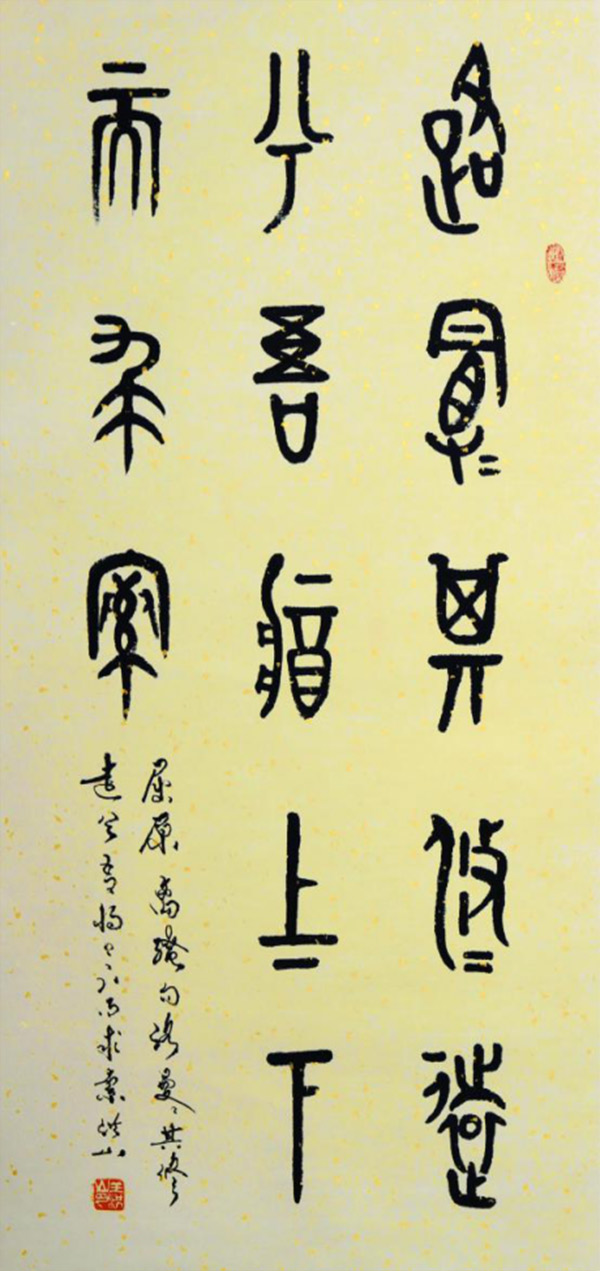 路曼〻其修遠
兮吾將上下
而求索
屈原離騷句路曼〻其修
遠兮吾將上下而求索洪山